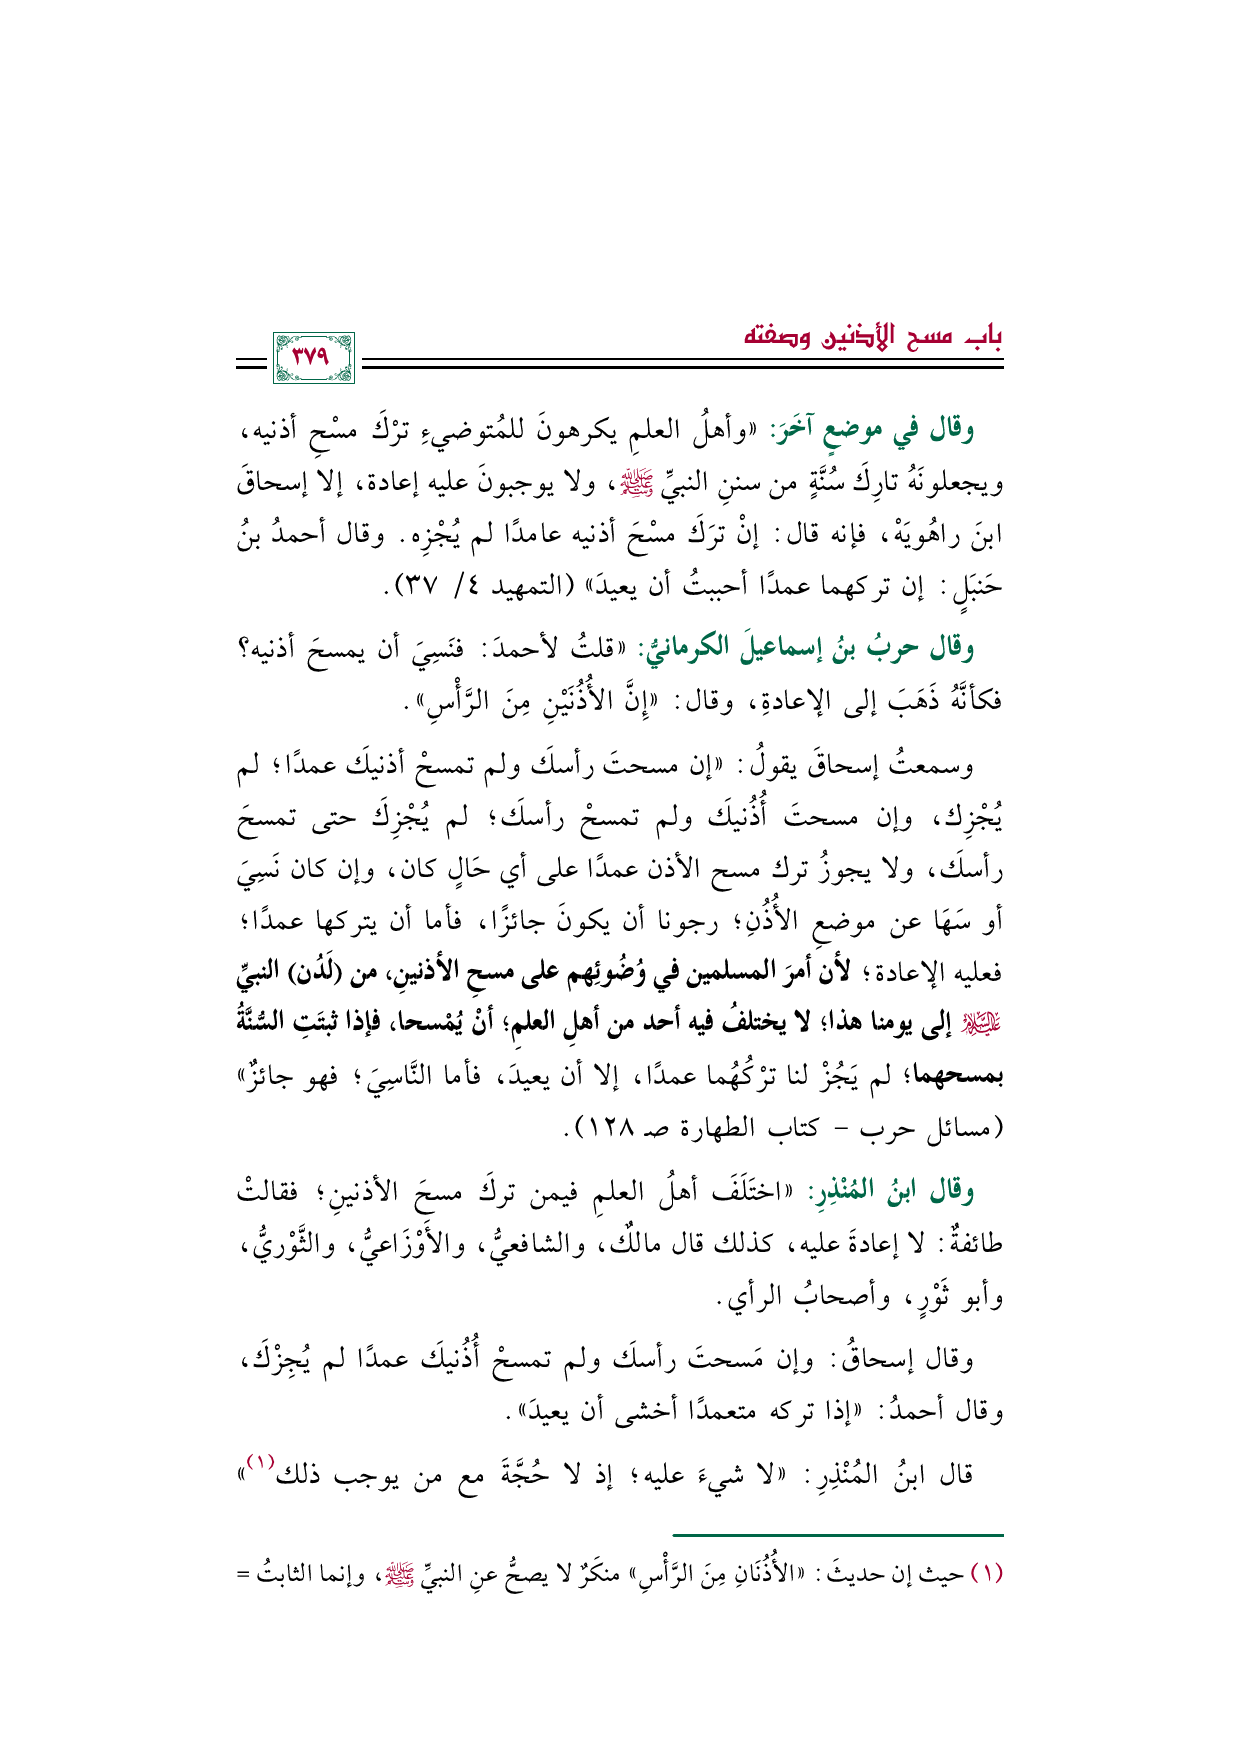 باب مسح الأذنين وصفته
٣٧٩
وقال في موضعٍ آخَرَ: «وأهلُ العلمِ يكرهونَ للمُتوضيءِ ترْكَ مسْحِ أذنيه،
ويجعلونَهُ تارِكَ سُنَّةٍ من سننِ النبيِّ ﷺ، ولا يوجبونَ عليه إعادة، إلا إسحاقَ
ابنَ راهُويَهْ، فإنه قال: إنْ ترَكَ مسْحَ أذنيه عامدًا لم يُجْزِه. وقال أحمدُ بنُ
حَنبَلٍ: إن تركهما عمدًا أحببتُ أن يعيدَ» (التمهيد ٤/ ٣٧).
وقال حربُ بنُ إسماعيلَ الكرمانيُّ: «قلتُ لأحمدَ: فنَسِيَ أن يمسحَ أذنيه؟
فكأنَّهُ ذَهَبَ إلى الإعادةِ، وقال: «إِنَّ الأُذُنَيْنِ مِنَ الرَّأْسِ».
وسمعتُ إسحاقَ يقولُ: «إن مسحتَ رأسكَ ولم تمسحْ أذنيكَ عمدًا؛ لم
يُجْزِك، وإن مسحتَ أُذُنيكَ ولم تمسحْ رأسكَ؛ لم يُجْزِكَ حتى تمسحَ
رأسكَ، ولا يجوزُ ترك مسح الأذن عمدًا على أي حَالٍ كان، وإن كان نَسِيَ
أو سَهَا عن موضعِ الأُذُنِ؛ رجونا أن يكونَ جائزًا، فأما أن يتركها عمدًا؛
فعليه الإعادة؛ لأن أمرَ المسلمين في وُضُوئِهم على مسحِ الأذنينِ، من (لَدُن) النبيِّ
عليه السلام إلى يومنا هذا؛ لا يختلفُ فيه أحد من أهلِ العلمِ؛ أنْ يُمْسحا، فإذا ثبتَتِ السُّنَّةُ
بمسحهما؛ لم يَجُزْ لنا ترْكُهُما عمدًا، إلا أن يعيدَ، فأما النَّاسِيَ؛ فهو جائزٌ»
(مسائل حرب - كتاب الطهارة صـ ١٢٨).
وقال ابنُ المُنْذِرِ: «اختَلَفَ أهلُ العلمِ فيمن تركَ مسحَ الأذنينِ؛ فقالتْ
طائفةٌ: لا إعادةَ عليه، كذلك قال مالكٌ، والشافعيُّ، والأَوْزَاعيُّ، والثَّوْريُّ،
وأبو ثَوْرٍ، وأصحابُ الرأي.
وقال إسحاقُ: وإن مَسحتَ رأسكَ ولم تمسحْ أُذُنيكَ عمدًا لم يُجِزْكَ،
وقال أحمدُ: «إذا تركه متعمدًا أخشى أن يعيدَ».
قال ابنُ المُنْذِرِ: «لا شيءَ عليه؛ إذ لا حُجَّةَ مع من يوجب ذلك(١)»
(١) حيث إن حديثَ: «الأُذُنَانِ مِنَ الرَّأْسِ» منكَرٌ لا يصحُّ عنِ النبيِّ ﷺ، وإنما الثابتُ =